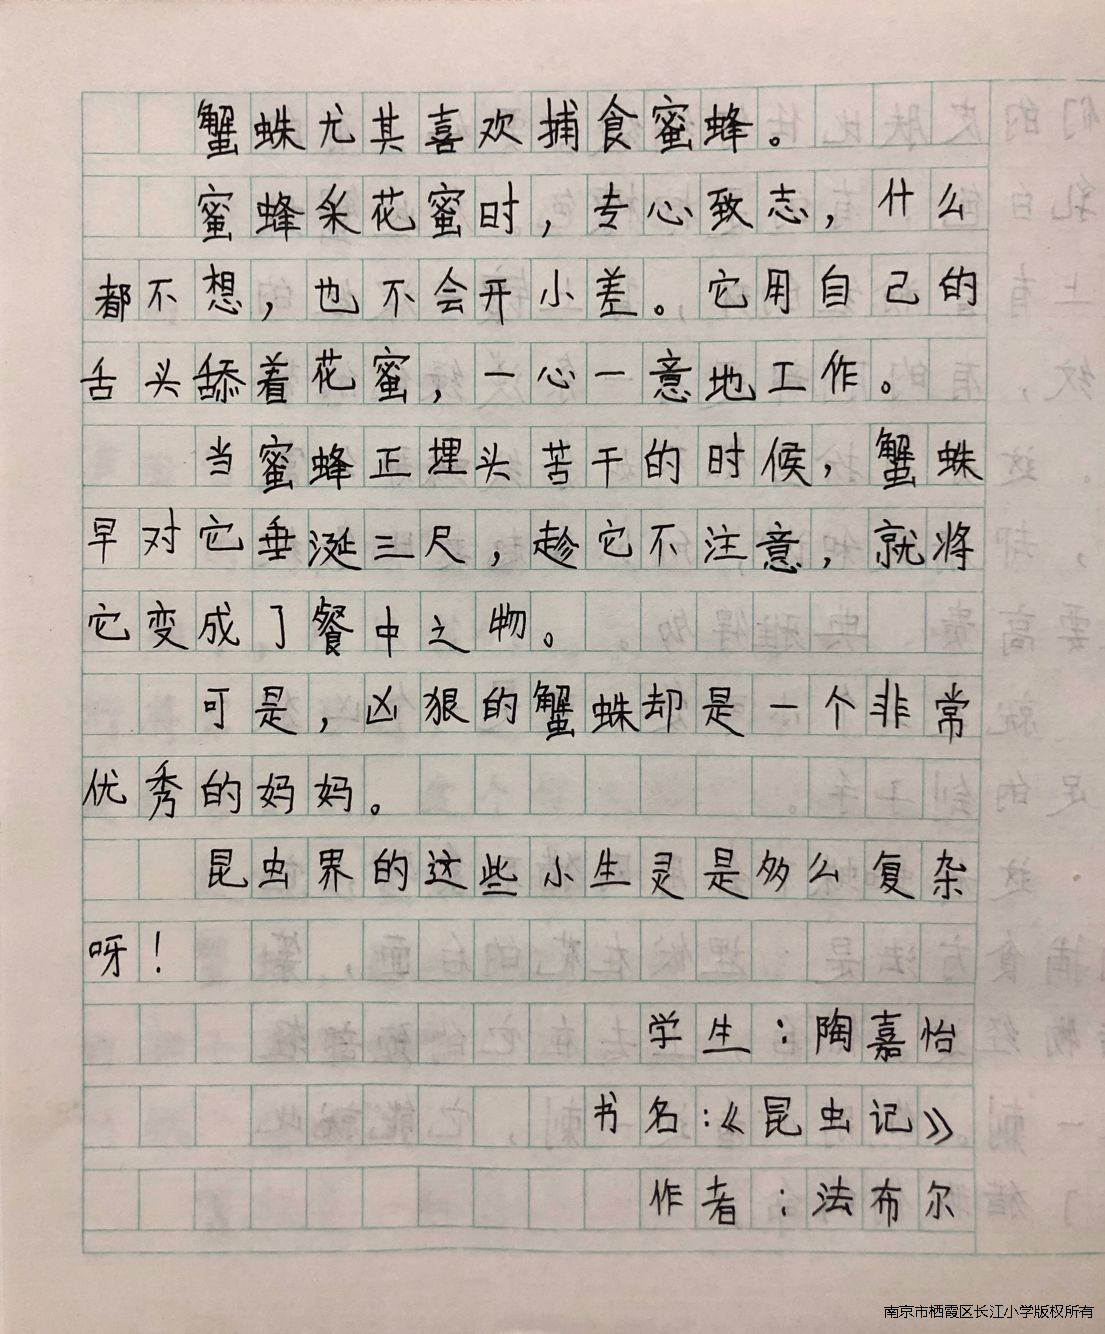 蟹蛛尤其喜欢捕食蜜蜂。
蜜蜂采花蜜时，专心致志，什么
都不想，也不会开小差。它用自己的
舌头舔着花蜜，一心一意地工作。
当蜜蜂正埋头苦干的时候，蟹蛛
早对它垂涎三尺，趁它不注意，就将
它变成了餐中之物。
可是，凶狠的蟹蛛却是一个非常
优秀的妈妈。
昆虫界的这些小生灵是多么复杂
呀！
学生：陶嘉怡
书名：《昆虫记》
作者：法布尔
南京市栖霞区长江小学版权所有